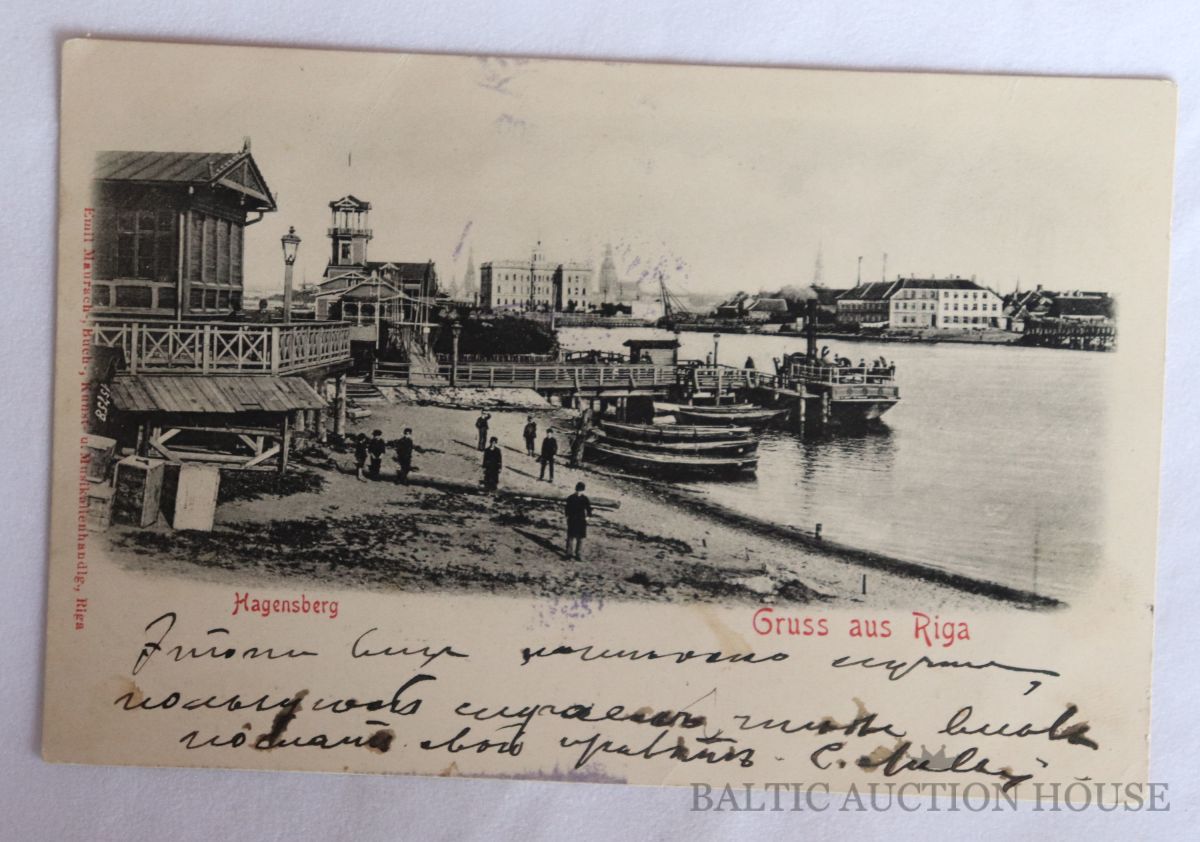 Emil Maurach, Buch-, Kunst- u. Musikalienhandlg., Riga
Hagensberg
Gruss aus Riga
Этотъ видъ лучше,
пользуюсь случаемъ чтобъ вновь
послать свой привѣтъ. С.
BALTIC AUCTION HOUSE